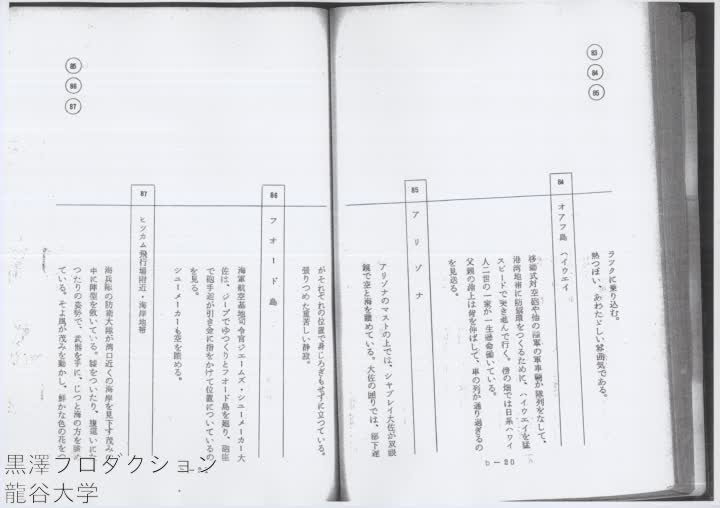 83
84
85
ラツクに乗り込む。
熱つぽい、あわたどしい雰囲気である。
84
オアフ島 ハイウエイ
移動式対空砲や他の陸軍の軍車輛が隊列をなして、
港湾地帯に防禦環をつくるために、ハイウエイを猛
スピードで突き進んで行く。傍の畑では日系ハワイ
人二世の一家が一生懸命働いている。
父親の治上は背を伸ばして、車の列が通り過ぎるの
を見送る。
85
アリゾナ
アリゾナのマストの上では、シャプレイ大佐が双眼
鏡で空と海を眺めている。大佐の囲りでは、部下達
b—20
85
86
87
がそれぞれの位置で身じろぎもせずに立つている。
張りつめた重苦しい静寂。
86
フオード島
海軍航空基地司令官ジエームズ・シユーメーカー大
佐は、ジープでゆつくりとフオード島を廻り、砲座
で砲手達が引き金に指をかけて位置についているの
を見る。
シユーメーカーも空を眺める。
87
ヒツカム飛行場附近・海岸地帯
海兵隊の防衛大隊が湾口近くの海岸を見下す茂みの
中に陣型を敷いている。膝をついたり、腹這いにな
つたりの姿勢で、武器を手に、じつと海の方を
ている。そよ風が茂みを動かし、鮮かな色の花を
黒澤プロダクション
龍谷大学